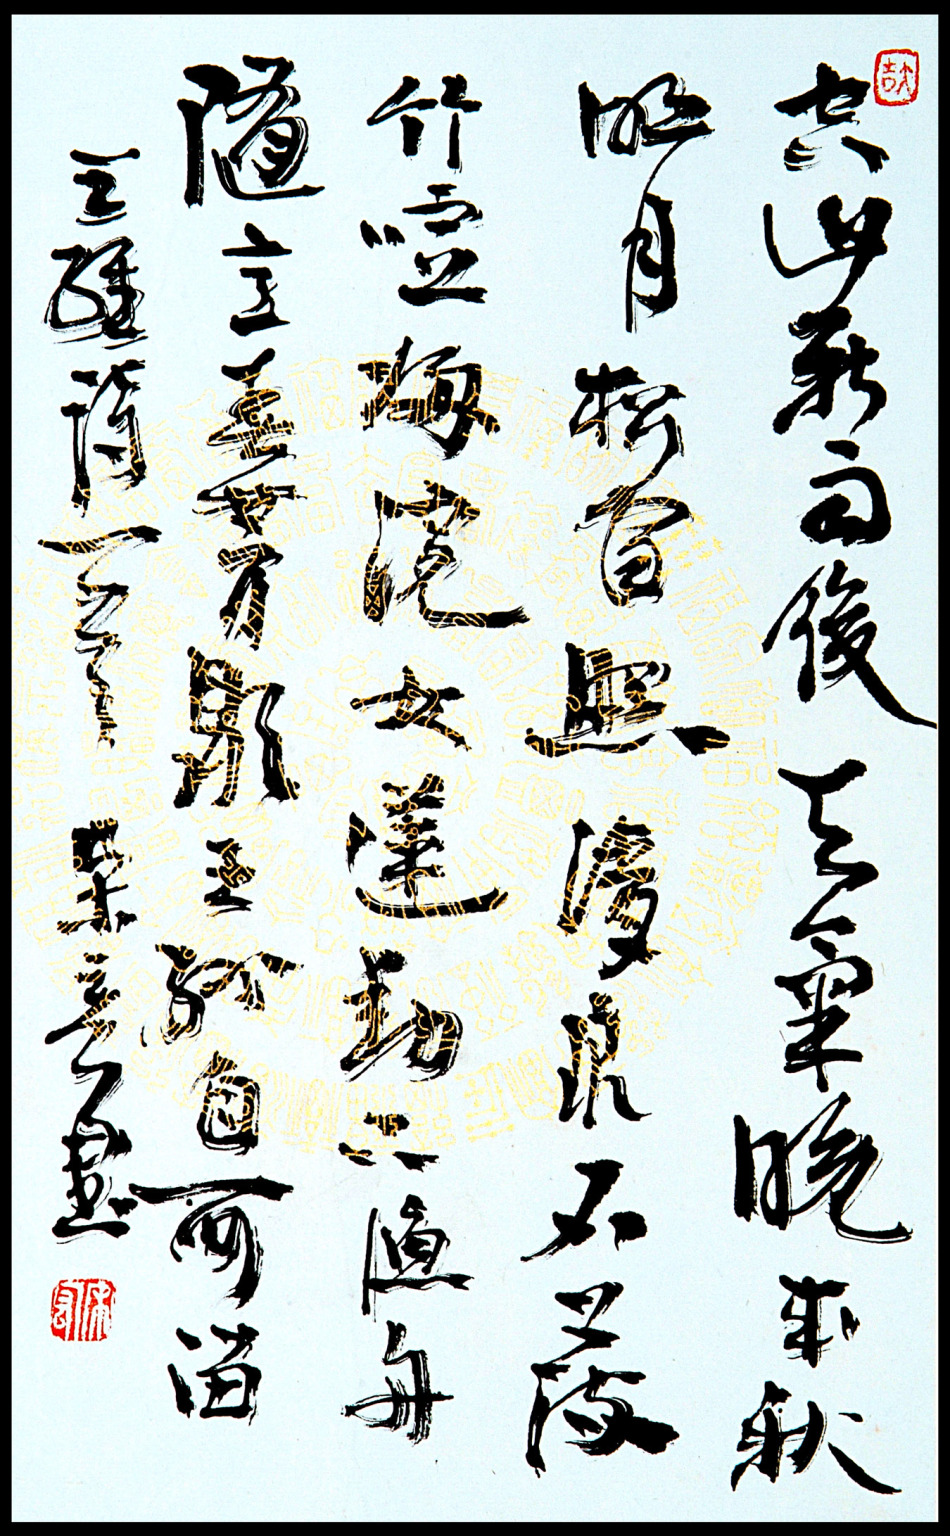 空山新雨後天氣晚來秋
明月松間照清泉石上流
竹喧歸浣女蓮動下漁舟
隨意春芳歇王孫自可留
王維詩一首